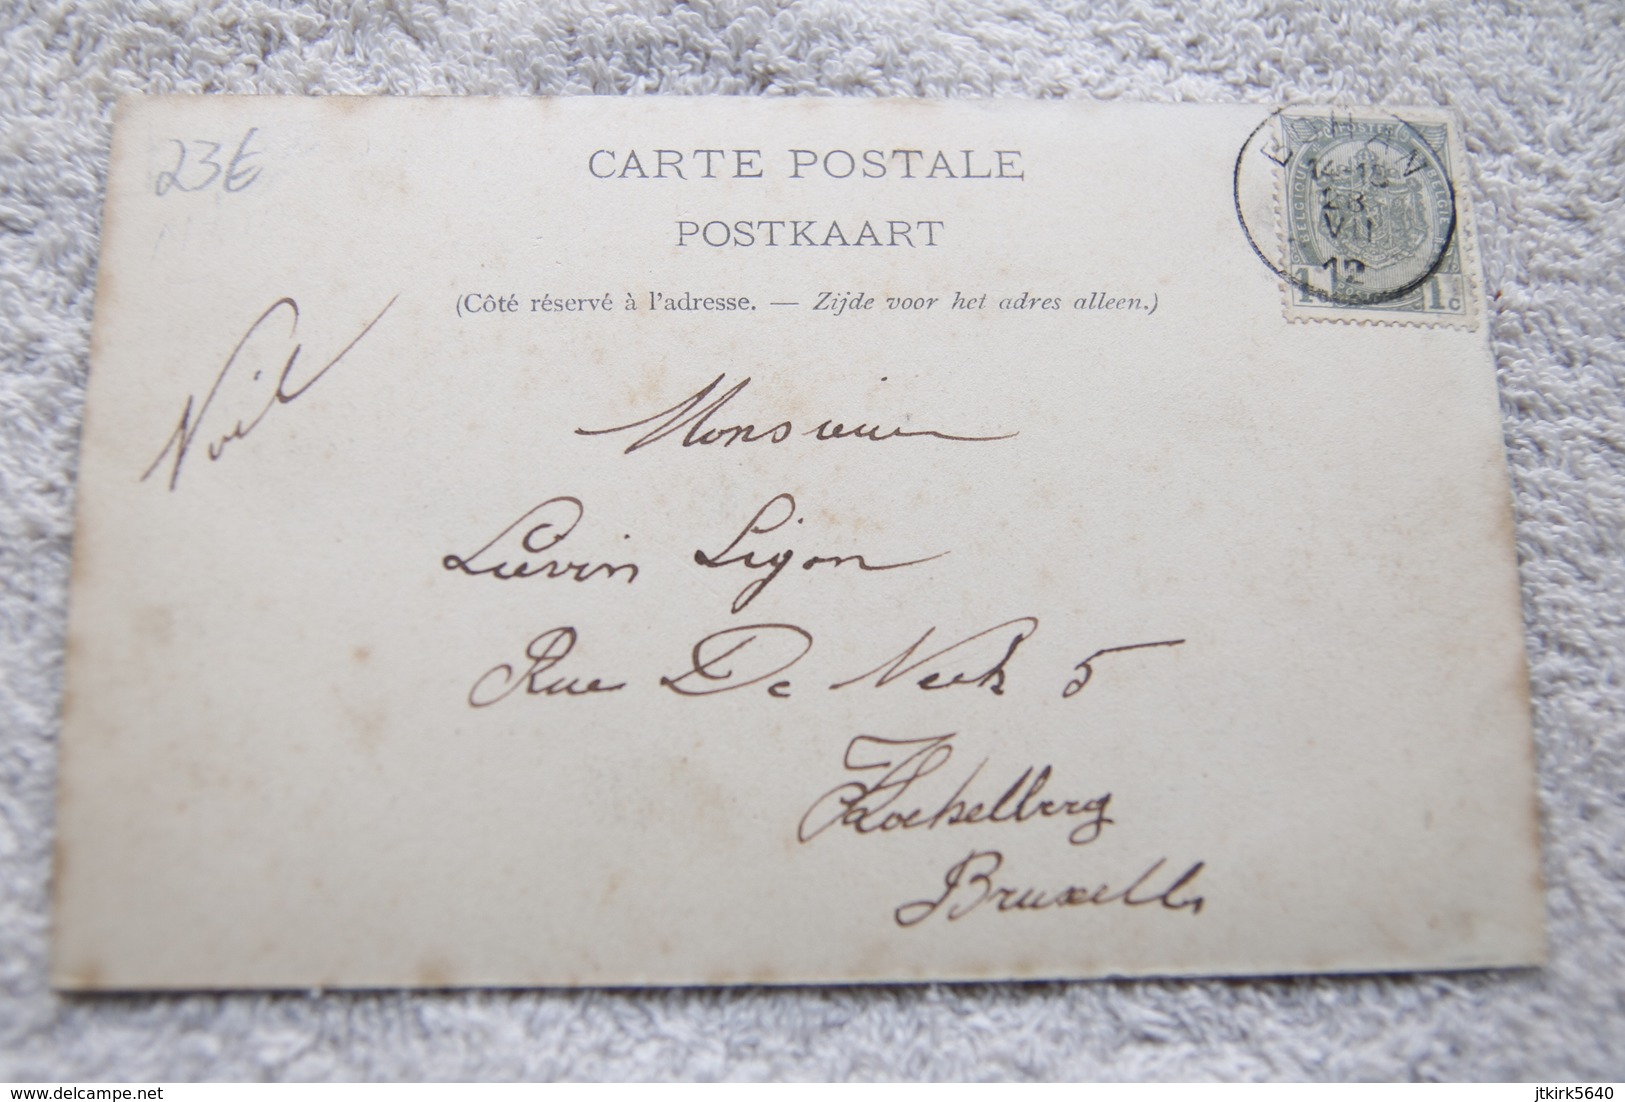 23€
CARTE POSTALE
POSTKAART
(Côté réservé à l'adresse. — Zijde voor het adres alleen.)
BELGIQUE BELGIË
28
VII
12
1 1c
Monsieur
Liévin Ligon
Rue De Neck 5
Koekelberg
Bruxelles
delcampe.net
jtkirk5640